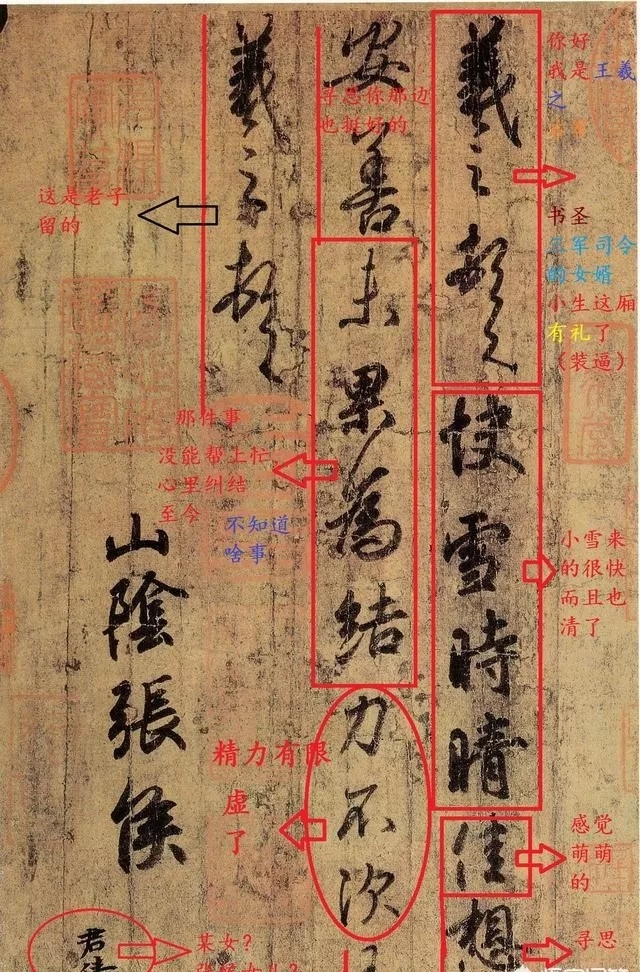 羲之頓首
快雪時晴
佳
想
安善
未果為結
力不次
王
羲之頓首
山陰張侯
君倩
你好
我是王羲
之
书圣
三军司令
的女婿
小生这厢
有礼了
（装逼）
小雪来
的很快
而且也
清了
感觉
萌萌
的
寻思
寻思你那边
也挺好的
那件事
没能帮上忙
心里纠结
至今
不知道
啥事
精力有限
虚
了
这是老子
留的
某女？